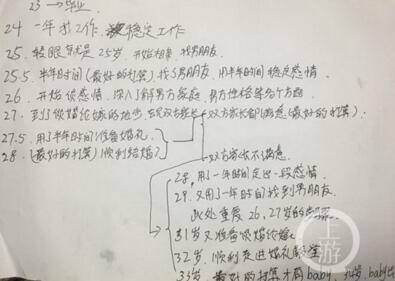 23 → 毕业.
24 一年找工作、稳定工作
25. 转眼就是25岁, 开始相亲, 找男朋友.
25.5 半年时间(最好的打算)找了男朋友, 用半年时间稳定感情.
26. 开始谈感情, 深入了解男方家庭、男方性格等各个方面.
27. 到了谈婚论嫁的地步, 双方家长 双方家长都满意(最好的打算).
27.5. 用了半年时间准备婚礼.
28. (最好的打算) 顺利结婚
双方家长不满意.
28, 用了一年时间走出一段感情.
29, 又用了一年时间找到男朋友.
此处重复26, 27岁的
31岁 又准备谈婚论嫁
32岁, 顺利走进婚礼殿堂
33岁 最好的打算才有baby, 34岁, baby
上游